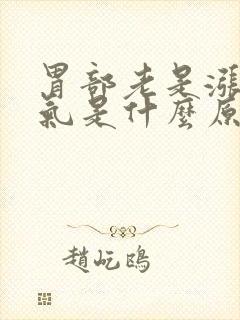 胃部老是漲
氣是什麼原
趙屹鷗